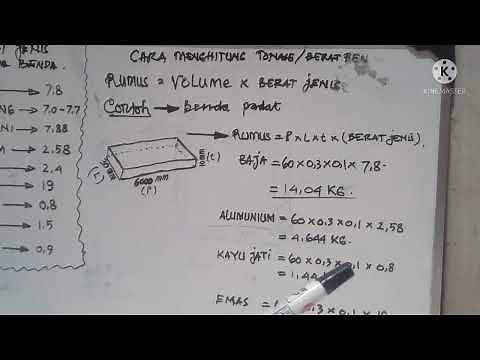 JENIS
BENDA.
7.8
7.0-7.7
NI 7.88
2.58
2.4
19
0.8
1.5
0,9
CARA MENGHITUNG TONASE/BERAT
RUMUS = VOLUME x BERAT JENIS
Contoh → benda padat
RUMUS = P x L x t x (BERAT JENIS)
(L)
6000 mm
(P)
10mm (t)
BAJA = 60 x 0,3 x 0,1 x 7,8
= 14,04 KG.
ALUMUNIUM = 60 x 0,3 x 0,1 x 2,58
= 4,644 KG.
KAYU JATI = 60 x 0,3 x 0,1 x 0,8
= 1,44
EMAS = 0,3 x 0,1 x 19
K
KINEMASTER